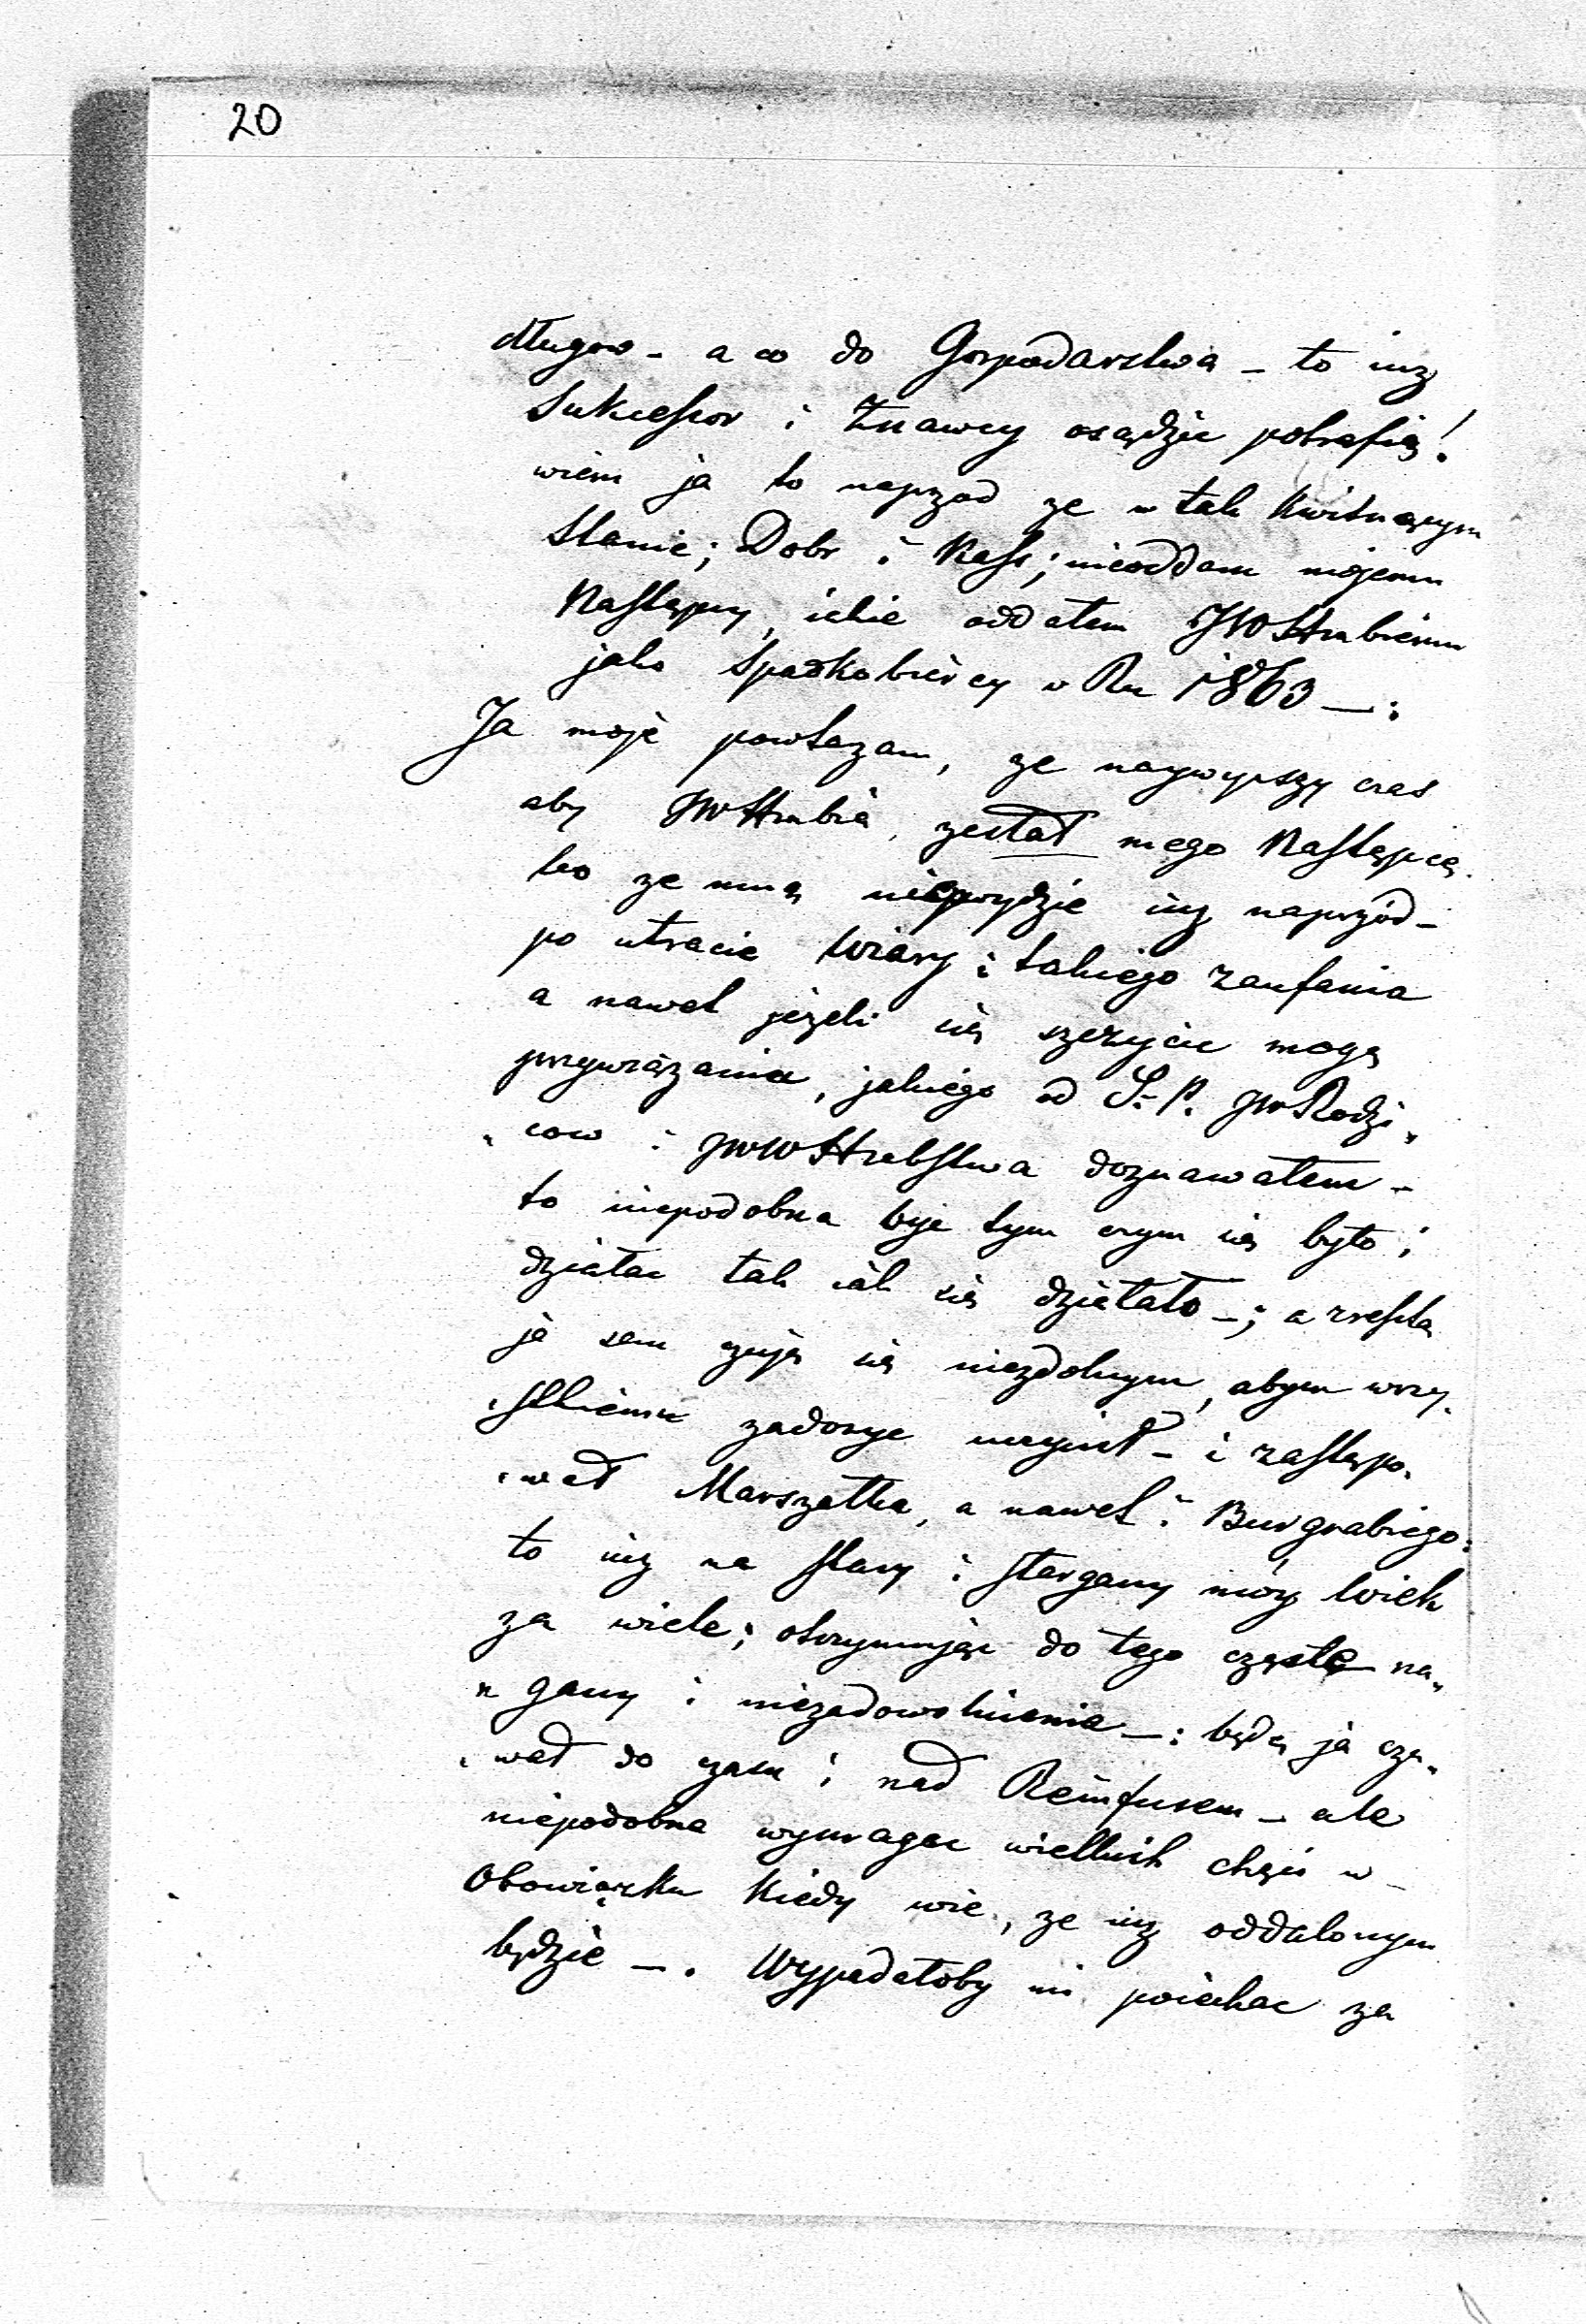 20
długow - a co do Gospodarstwa - to iuz
Sukcessor i Znawcy osądzic potrafią!
wiem ja to naprzod ze w tak Kwitnącym
Stanie; Dobr i Kass; nieoddam mojemu
Następcy, iakie oddałem JWHrabiemu
jako Spadkobiercy w Ru 1863 -:
Ja moje powtazam, ze naywyzszy czas
aby JWHrabia, zesłał mego Następcę.
bo ze mną niepuydzie iuz naprzód -
po utracie Wiary i takiego zaufania
a nawet jeżeli się szczycic mogę
przywiązania, jakiego od S. P. JWRodzi„
„cow i JWWHrabstwa doznawałem -
to niepodobna byc tym czym się było i
działac tak iak się działało -; a zresztą
ja sam czuję się niezdolnym, abym wszy„
„stkiemu zadosyc uczynił - i zastępo„
„wał Marszałka, a nawet i Burgrabiego:
to iuz na stary i stargany móy Wiek
za wiele; otrzymując do tego częste na„
„gany i niezadowolnienia -: będę ja czu„
„wał do czasu i nad Reinfusem - ale
niepodobna wymagac wielkich chęci w
Obowiązku Kiedy wie, ze iuz oddalonym
będzie -. Wypadałoby mi poiechac za